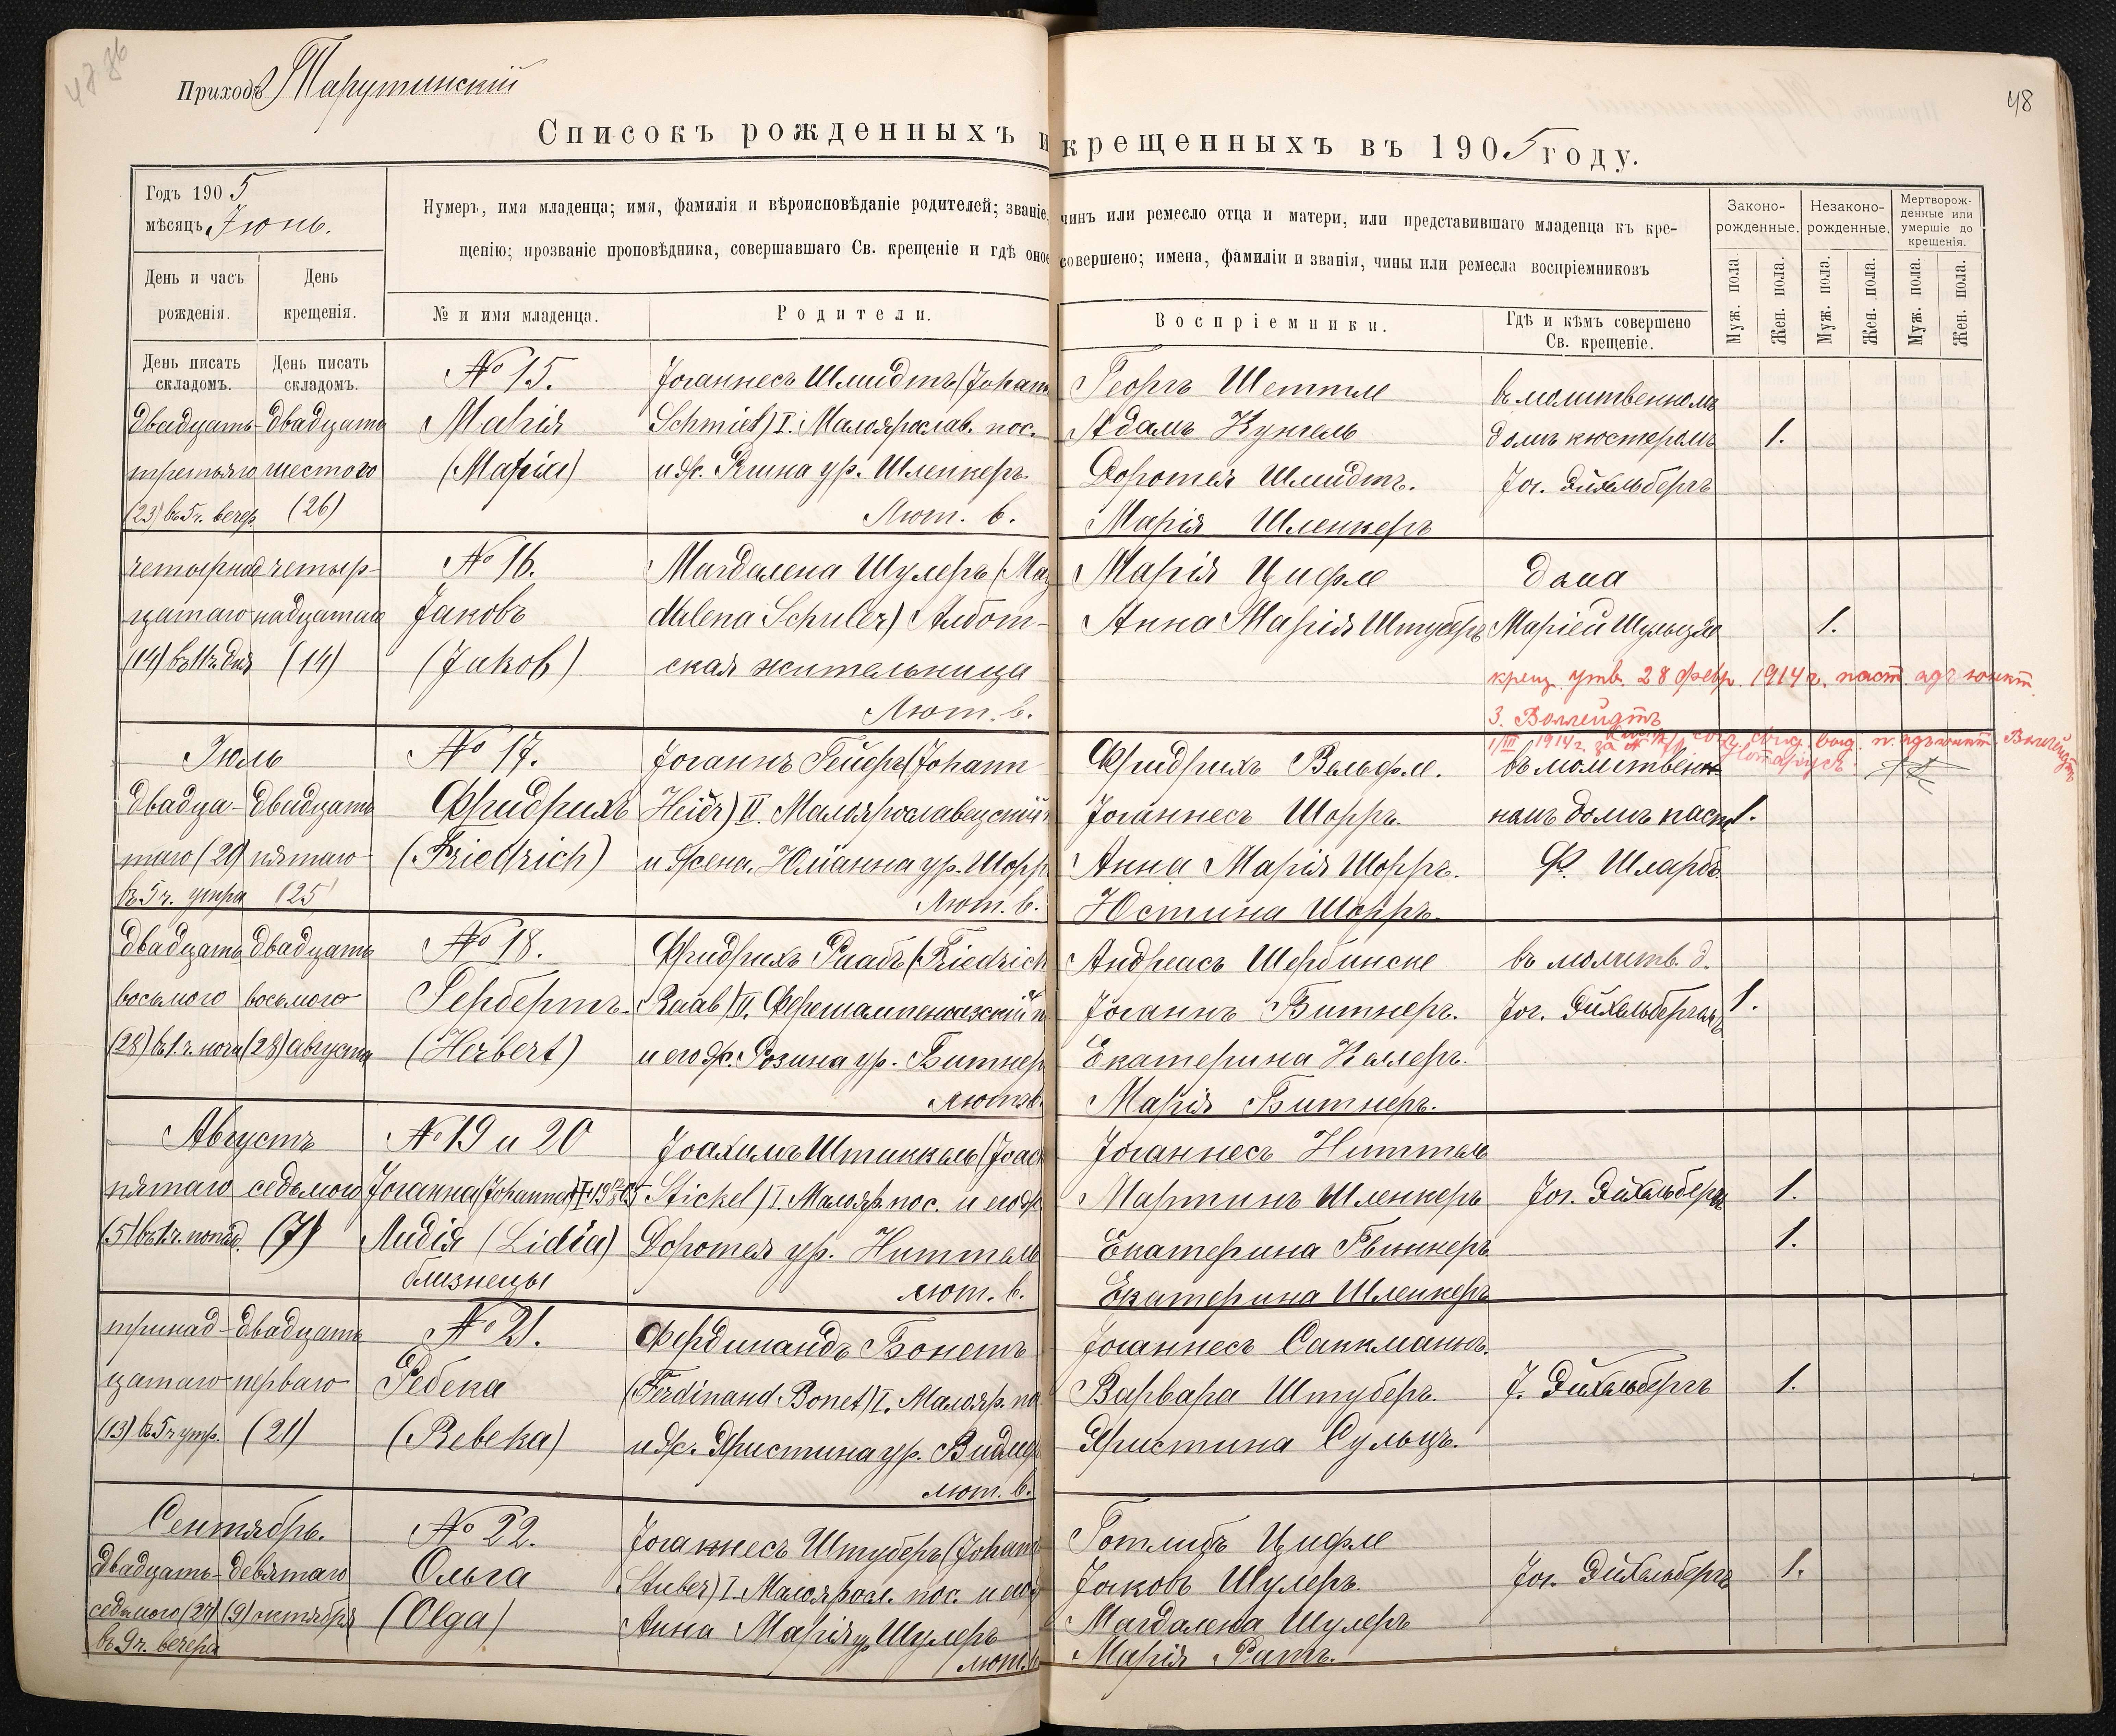 47. 86
Приходъ Тарутинскій
48
Списокъ рожденныхъ и крещенныхъ въ 1905 году.
Годъ 1905
мѣсяцъ Іюнь.
Нумеръ, имя младенца; имя, фамилія и вѣроисповѣданіе родителей; званіе, чинъ или ремесло отца и матери, или представившаго младенца къ кре-
щенію; прозваніе проповѣдника, совершавшаго Св. крещеніе и гдѣ оное совершено; имена, фамиліи и званія, чины или ремесла воспріемниковъ
Законо-
рожденные.
Незаконо-
рожденные.
Мертворож-
денные или
умершіе до
крещенія.
День и часъ
рожденія.
День
крещенія.
№ и имя младенца.
Родители.
Воспріемники.
Гдѣ и кѣмъ совершено
Св. крещеніе.
Муж. пола.
Жен. пола.
Муж. пола.
Жен. пола.
Муж. пола.
Жен. пола.
День писать
складомъ.
День писать
складомъ.
двадцать-
третьяго
(23) въ 5 ч. вечер.
двадцать
шестого
(26)
№ 15.
Марія
(Maria)
Іоганнесъ Шмидтъ (Johan
Schmiet) I. Малоярослав. пос.
и ж. Решна ур. Шленкеръ.
Лют. в.
Георгъ Шеттле
Адамъ Кунгель
Доротея Шмидтъ.
Марія Шленкеръ
въ молитвенномъ
домъ кюстеромъ
Іог. Эйхельбергъ
1.
четырнад
цатаго
(14) въ 11 ч. дня
четыр-
надцатаго
(14)
№ 16.
Јаковъ
(Jakob)
Магдалена Шулеръ (Mag
dalena Schuler) Албот-
ская жительница
Лют. в.
Марія Цифле
Анна Марія Штуберъ
дома
Маріей Шульцъ
1.
крещ. утв. 28 февр. 1914 г. паст. адъюнкт.
З. Воллейдтъ
1/III 1914 г. за №
Іюль
двадца-
таго (20)
въ 5 ч. утра
двадцать
пятаго
(25)
№ 17.
Фридрихъ
(Friedrich)
Іоганнъ Гейеръ (Johann
Heier) II. Малоярославецскій
и жена. Юліанна ур. Шорръ
Лют. в.
Фридрихъ Вельфле.
Іоганнесъ Шорръ.
Анна Марія Шорръ.
Юстина Шорръ.
въ молитвен-
номъ домъ паст.
Ф. Шларбъ
1.
двадцать
восьмого
(28) въ 1 ч. ночи
двадцать
восьмого
(28) августа
№ 18.
Гербертъ.
(Herbert)
Фридрихъ Раабъ (Friedrich
Raab) II. Фершампенуазскій п
и его ж. Розина ур. Битнер
лют. в.
Андреасъ Шербинске
Іоганнъ Битнеръ.
Екатерина Келеръ.
Марія Битнеръ.
въ молитв. д.
Іог. Эйхельбергъ
1.
Августъ
пятаго
(5) въ 1 ч. попол.
седьмого
(7)
№ 19 и 20
Іоганна (Johanna)
Лидія (Lidia)
близнецы
Іоахимъ Штиккель (Joach
Stickel) I. Малояр. пос. и его ж.
Доротея ур. Ниттель
лют. в.
Іоганнесъ Ниттель
Мартинъ Шленкеръ
Екатерина Гвиннеръ
Екатерина Шленкеръ
Іог. Эйхельбергъ
1.
1.
тринад-
цатаго
(13) въ 5 ч. утр.
двадцать
перваго
(21)
№ 21.
Ребека
(Rebeka)
Фердинандъ Бонетъ
(Ferdinand Bonet) I. Малояр. по
и ж. Христина ур. Видмер
лют. в.
Іоганнесъ Саккманнъ.
Варвара Штуберъ.
Христина Сульцъ.
І. Эйхельбергъ
1.
Сентябрь.
двадцать-
седьмого (27)
въ 9 ч. вечера
девятаго
(9) октября
№ 22.
Ольга
(Olga)
Іоганнесъ Штуберъ (Johann
Stuber) I. Малояросл. пос. и его ж
Анна Марія ур. Шулеръ
лют. в.
Готлибъ Цифле
Јаковъ Шулеръ.
Магдалена Шулеръ
Марія Ратъ.
Іог. Эйхельбергъ
1.